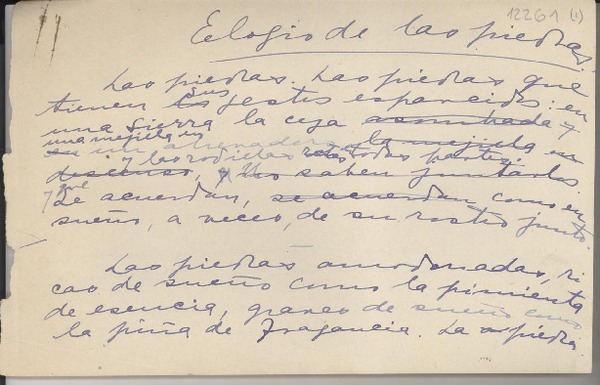 12261 (1)
Elogio de las piedras.
Las piedras. Las piedras que
tienen sus gestos esparcidos: en
una sierra la ceja asombrada y
una mejilla en la mejilla en
y las rodillas todas partes.
descenso, y no saben juntarlos
y que
Se acuerdan, se acuerdan como en
sueño, a veces, de su rostro junto.
Las piedras amodorradas, ri
cas de sueño como la pimienta
de esencia, graves de sueño como
la piña de fragancia. La piedra